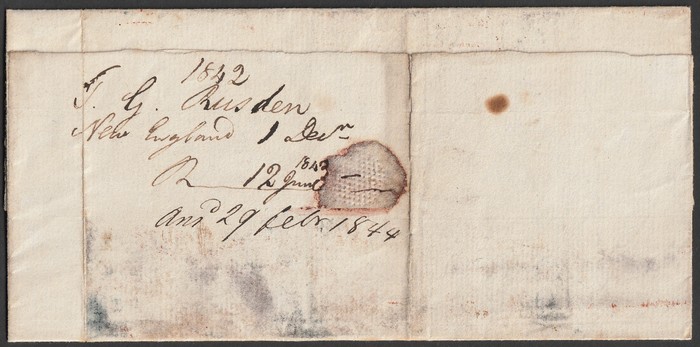 1842
T. G. Rusden
New England 1 Decr
R 12 June 1843
Ansd 29 Febr. 1844